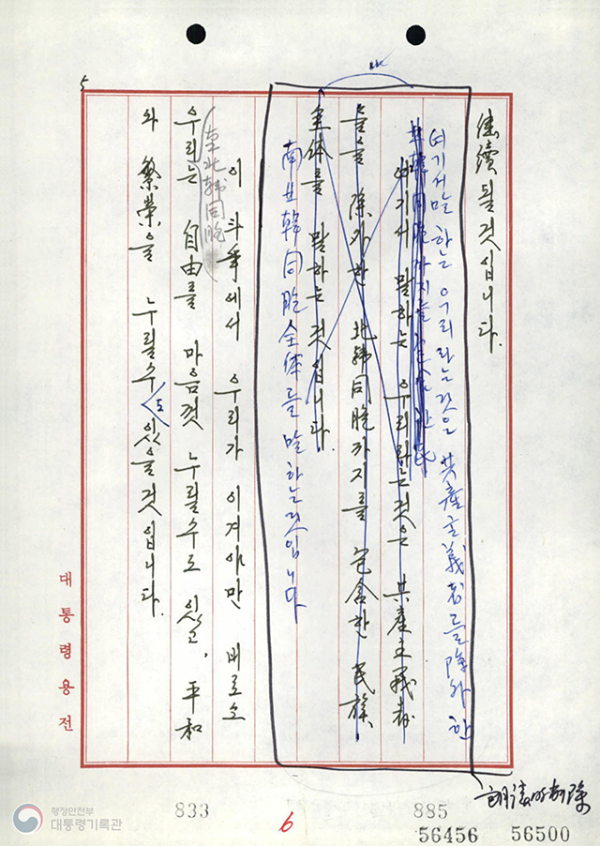 5
継續될것입니다.
여기서 말하는 우리라는것은 共産主義者를 除外한
北韓同胞까지를
여기서 말하는 우리라는것은 共産主義者
들을 除外한 北韓同胞까지를 包含한 民族
全体를 말하는것입니다.
南北韓同胞全体를 말하는것입니다
이 斗爭에서 우리가 이겨야만 비로소
北韓同胞
우리는 自由를 마음껏 누릴수도 있고, 平和
와 繁榮을 누릴수도 있을것입니다.
대통령용전
朗讀時削除
행정안전부
대통령기록관
833
6
885
56456
56500